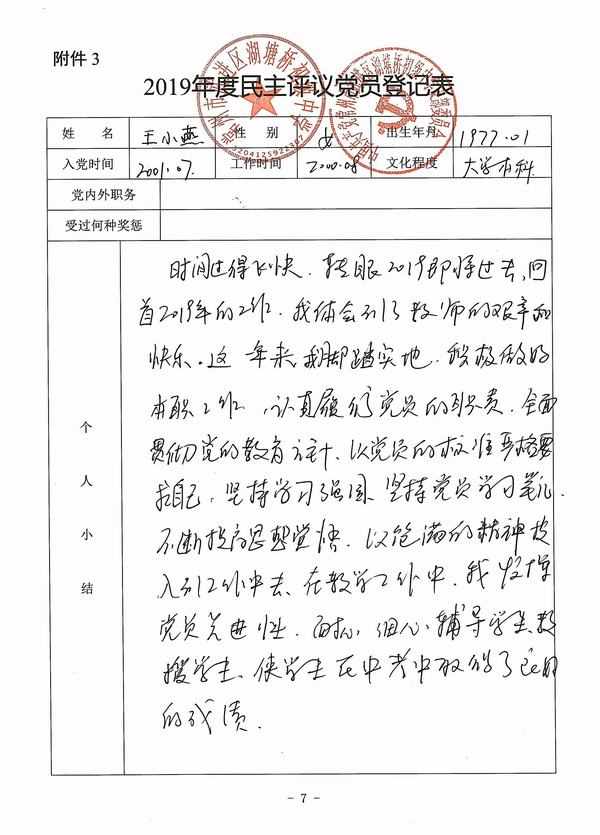 附件3
2019年度民主评议党员登记表
姓名 王小燕 性别 女 出生年月 1977.01
入党时间 2001.07. 工作时间 2000.08 文化程度 大学本科
党内外职务
受过何种奖惩
个人小结
时间过得飞快，转眼2019即将过去，回
首2019年的工作，我体会到了教师的艰辛和
快乐。这一年来，我脚踏实地，积极做好
本职工作，认真履行党员的职责，全面
贯彻党的教育方针、以党员的标准严格要
求自己，坚持学习强国、坚持党员学习笔记，
不断提高思想觉悟，以饱满的精神投
入到工作中去、在教学工作中，我发挥
党员先进性，耐心，细心，辅导学生、教
授学生、使学生在中考中取得了
的成绩.
- 7 -